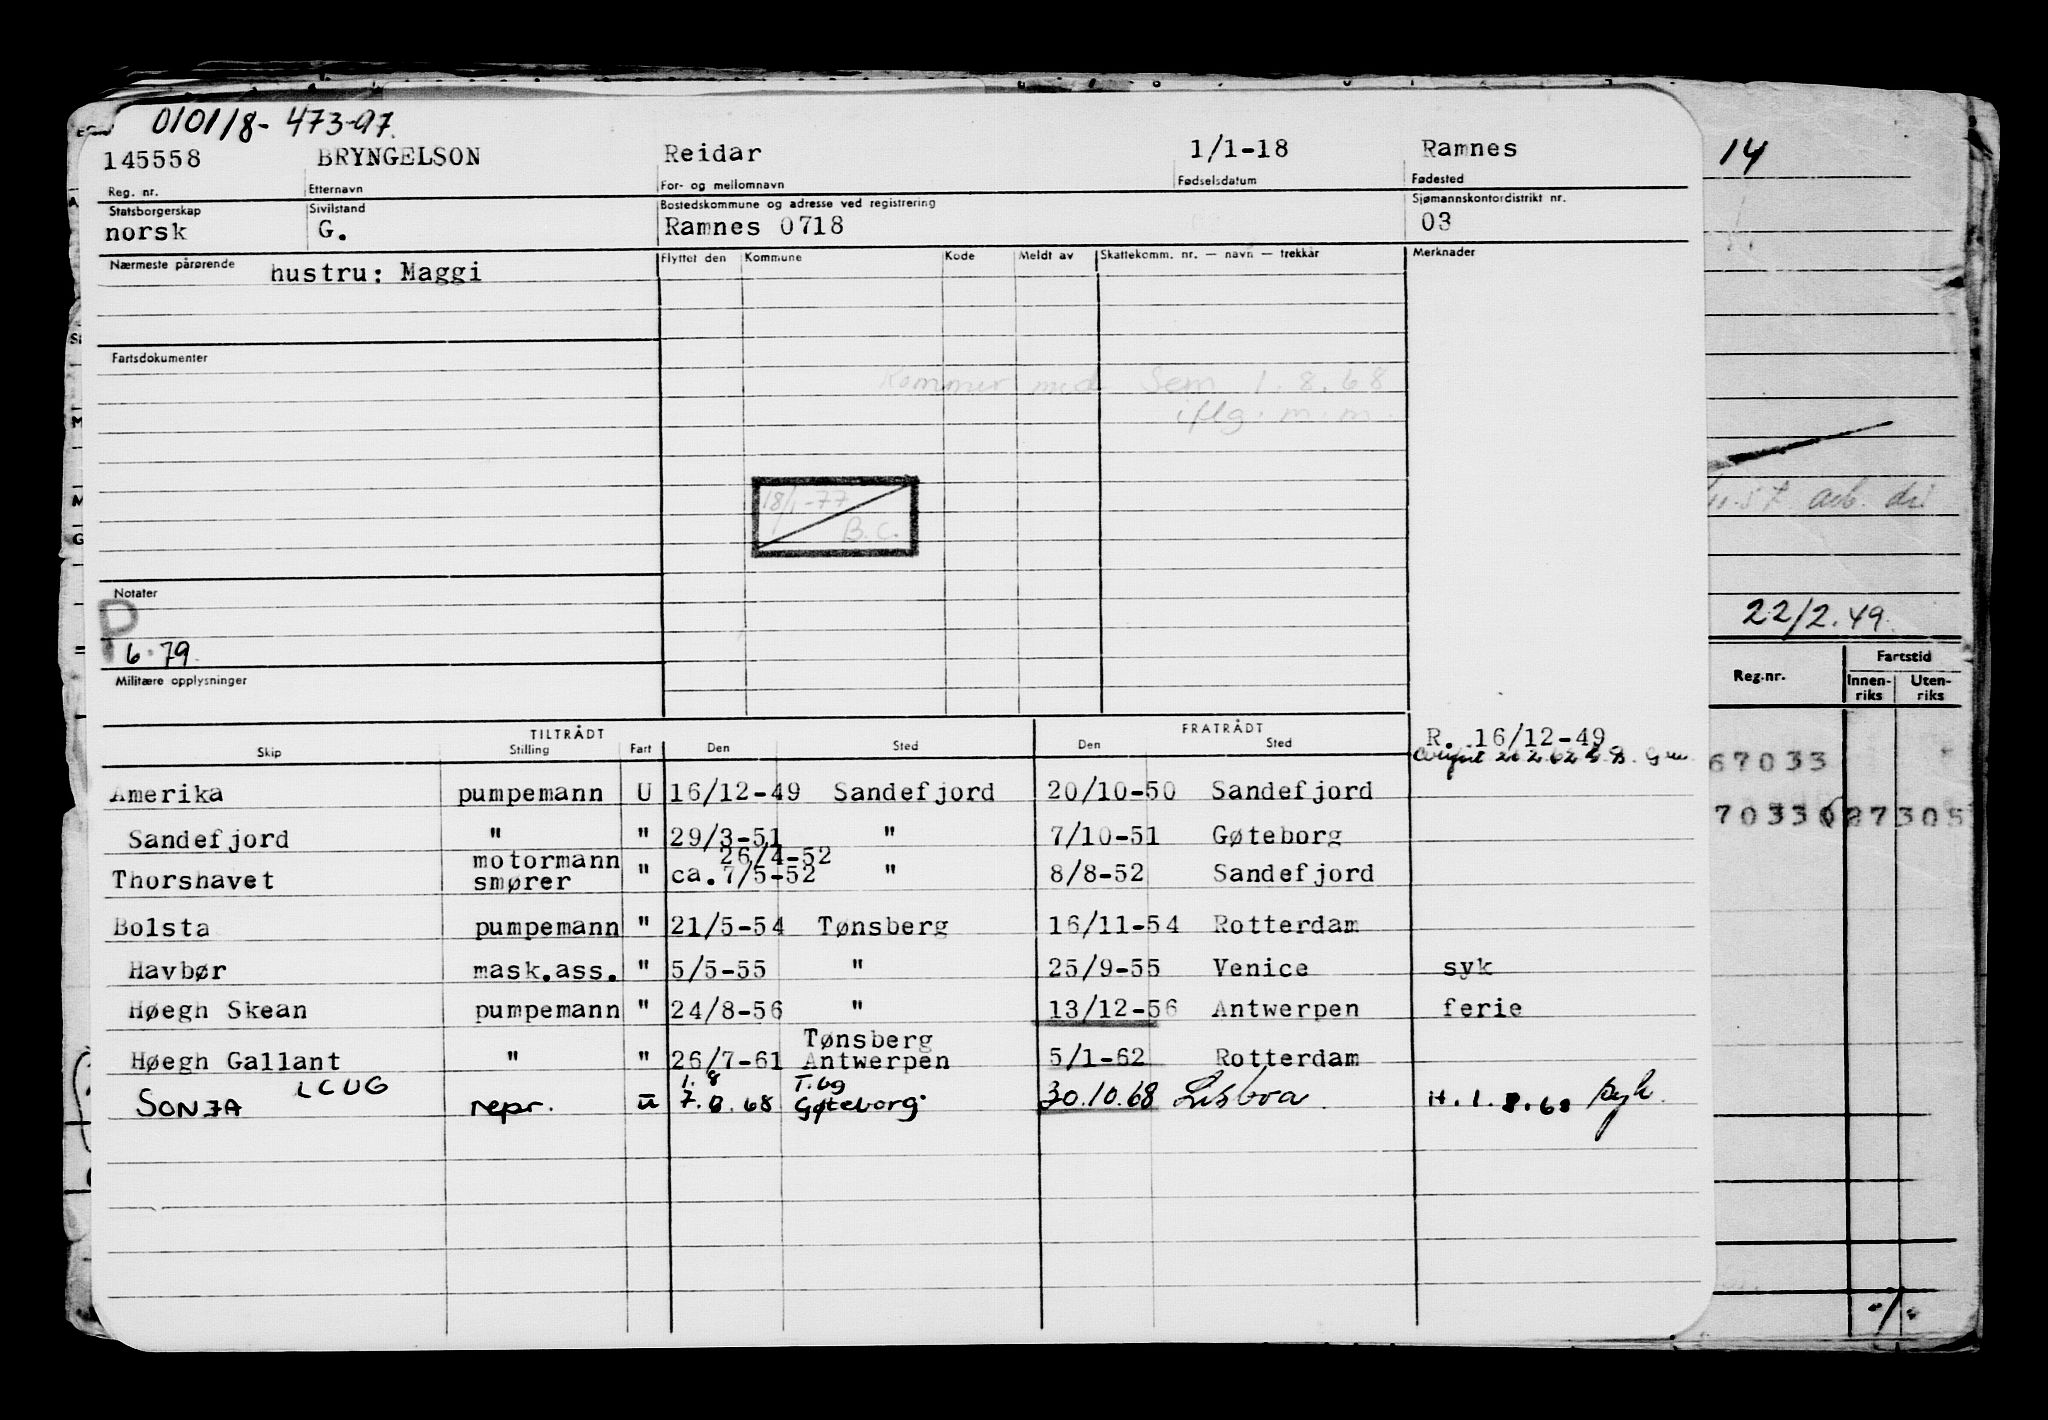 010118-473-97.
145558 BRYNGELSON Reidar 1/1-18 Ramnes 14
Reg. nr. Etternavn For- og mellomnavn Fødselsdatum Fødested
Statsborgerskap Sivilstand Bostedskommune og adresse ved registrering Sjømannskontordistrikt nr.
norsk G. Ramnes 0718 03
Nærmeste pårørende hustru: Maggi Flyttet den Kommune Kode Meldt av Skattekomm. nr. — navn — trekkår Merknader
Fartsdokumenter
Kommer med Sem 1.8.68
iflg. m.m.
18/1-77
B.C.
arb.
Notater
P
6.79.
22/2.49.
Militære opplysninger
Reg.nr. Fartstid
Innenriks Utenriks
TILTRÅDT FRATRÅDT
Skip Stilling Fart Den Sted Den Sted
R. 16/12-49
67033
Amerika pumpemann U 16/12-49 Sandefjord 20/10-50 Sandefjord
Sandefjord " " 29/3-51 " 7/10-51 Gøteborg
motormann 26/4-52
Thorshavet smører " ca. 7/5-52 " 8/8-52 Sandefjord
Bolsta pumpemann " 21/5-54 Tønsberg 16/11-54 Rotterdam
Havbør mask.ass. " 5/5-55 " 25/9-55 Venice syk
Høegh Skean pumpemann " 24/8-56 " 13/12-56 Antwerpen ferie
Tønsberg
Høegh Gallant " " 26/7-61 Antwerpen 5/1-62 Rotterdam
LCUG 1.8 T.bg
SONJA repr. U 7.8.68 Gøteborg 30.10.68 Lisboa H.1.8.68 syk.